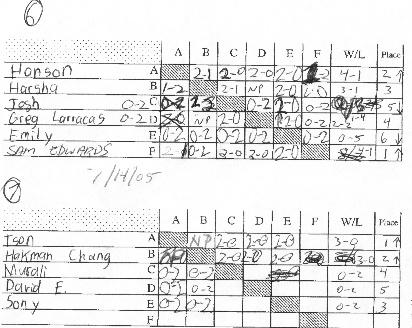 6
A B C D E F W/L Place
Hanson A 2-1 2-0 2-0 2-0 4-1 2↑
Harsha B 1-2 2-1 NP 2-0 3-1 3
Josh 0-2 C 0-2 0-2 2-0 0-2 5↓
Greg Larracas 0-2 D NP 2-0 0-2 4
Emily E 0-2 0-2 0-2 0-2 0-5 6↓
SAM EDWARDS F 0-2 2-0 2-0 2-0 4-1 1↑
7/14/05
7
A B C D E F W/L Place
Tson A NP 2-0 2-0 2-0 3-0 1↑
Hakman Chang B 2-0 2-0 2-0 3-0 2↑
Murali C 0-2 0-2 0-2 4
David F. D 0-2 0-2 0-2 5
Sony E 0-2 0-2 0-2 3
F